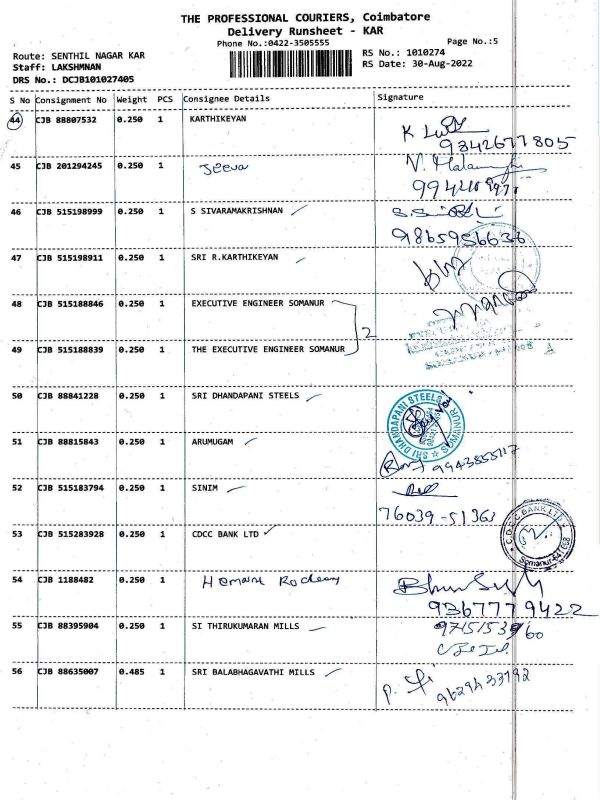 THE PROFESSIONAL COURIERS, Coimbatore
Delivery Runsheet - KAR
Phone No.:0422-3505555
Page No.:5
Route: SENTHIL NAGAR KAR
RS No.: 1010274
Staff: LAKSHMNAN
RS Date: 30-Aug-2022
DRS No.: DCJB101027405
S No Consignment No Weight PCS Consignee Details Signature
44 CJB 88807532 0.250 1 KARTHIKEYAN
9842677805
45 CJB 201294245 0.250 1 Jeeva
46 CJB 515198999 0.250 1 S SIVARAMAKRISHNAN
9865956636
47 CJB 515198911 0.250 1 SRI R.KARTHIKEYAN
48 CJB 515188846 0.250 1 EXECUTIVE ENGINEER SOMANUR
2
49 CJB 515188839 0.250 1 THE EXECUTIVE ENGINEER SOMANUR
50 CJB 88841228 0.250 1 SRI DHANDAPANI STEELS
SRI DHANDAPANI STEELS SOMANUR
51 CJB 88815843 0.250 1 ARUMUGAM
52 CJB 515183794 0.250 1 SINIM
76039-51363
53 CJB 515283928 0.250 1 CDCC BANK LTD
C.D.C.C BANK LTD Somanur-641 668
54 CJB 1188482 0.250 1
9367779422
55 CJB 88395904 0.250 1 SI THIRUKUMARAN MILLS
56 CJB 88635007 0.485 1 SRI BALABHAGAVATHI MILLS